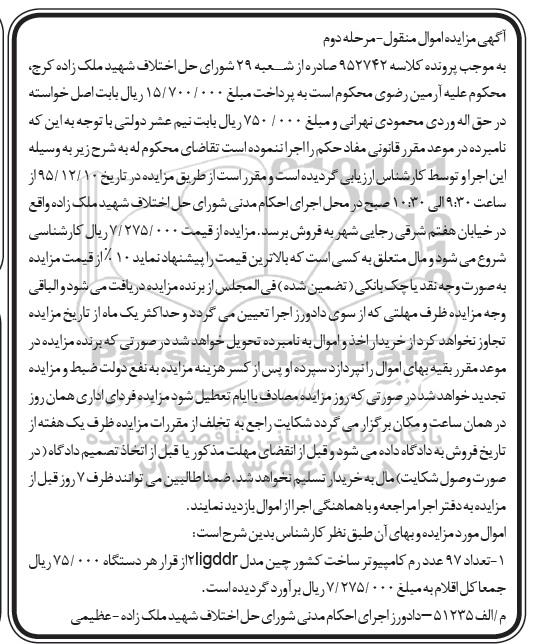 آگهی مزایده اموال منقول-مرحله دوم
به موجب پرونده کلاسه ۹۵۲۷۴۲ صادره از شعبه ۲۹ شورای حل اختلاف شهید ملک زاده کرج،
محکوم علیه آرمین رضوی محکوم است به پرداخت مبلغ ۱۵/۷۰۰/۰۰۰ ریال بابت اصل خواسته
در حق اله وردی محمودی تهرانی و مبلغ ۷۵۰/۰۰۰ ریال بابت نیم عشر دولتی با توجه به این که
نامبرده در موعد مقرر قانونی مفاد حکم را اجرا ننموده است تقاضای محکوم له به شرح زیر به وسیله
این اجرا و توسط کارشناس ارزیابی گردیده است و مقرر است از طریق مزایده در تاریخ ۹۵/۱۲/۱۰ از
ساعت ۹:۳۰ الی ۱۰:۳۰ صبح در محل اجرای احکام مدنی شورای حل اختلاف شهید ملک زاده واقع
در خیابان هفتم شرقی رجایی شهر به فروش برسد. مزایده از قیمت ۷/۲۷۵/۰۰۰ ریال کارشناسی
شروع می شود و مال متعلق به کسی است که بالاترین قیمت را پیشنهاد نماید ۱۰٪ از قیمت مزایده
به صورت وجه نقد یا چک بانکی (تضمین شده) فی المجلس از برنده مزایده دریافت می شود و الباقی
وجه مزایده ظرف مهلتی که از سوی دادورز اجرا تعیین می گردد و حداکثر یک ماه از تاریخ مزایده
تجاوز نخواهد کرد از خریدار اخذ و اموال به نامبرده تحویل خواهد شد در صورتی که برنده مزایده در
موعد مقرر بقیه بهای اموال را نپردازد سپرده او پس از کسر هزینه مزایده به نفع دولت ضبط و مزایده
تجدید خواهد شد در صورتی که روز مزایده مصادف با ایام تعطیل شود مزایده فردای اداری همان روز
در همان ساعت و مکان برگزار می گردد شکایت راجع به تخلف از مقررات مزایده ظرف یک هفته از
تاریخ فروش به دادگاه داده می شود و قبل از انقضای مهلت مذکور یا قبل از اتخاذ تصمیم دادگاه (در
صورت وصول شکایت) مال به خریدار تسلیم نخواهد شد. ضمنا طالبین می توانند ظرف ۷ روز قبل از
مزایده به دفتر اجرا مراجعه و با هماهنگی اجرا از اموال بازدید نمایند.
اموال مورد مزایده و بهای آن طبق نظر کارشناس بدین شرح است:
۱-تعداد ۹۷ عدد رم کامپیوتر ساخت کشور چین مدل ۲ligddr از قرار هر دستگاه ۷۵/۰۰۰ ریال
جمعا کل اقلام به مبلغ ۷/۲۷۵/۰۰۰ ریال برآورد گردیده است.
م/الف ۵۱۲۳۵-دادورز اجرای احکام مدنی شورای حل اختلاف شهید ملک زاده-عظیمی
ParsNamadData
پایگاه اطلاع رسانی مناقصه و مزایده